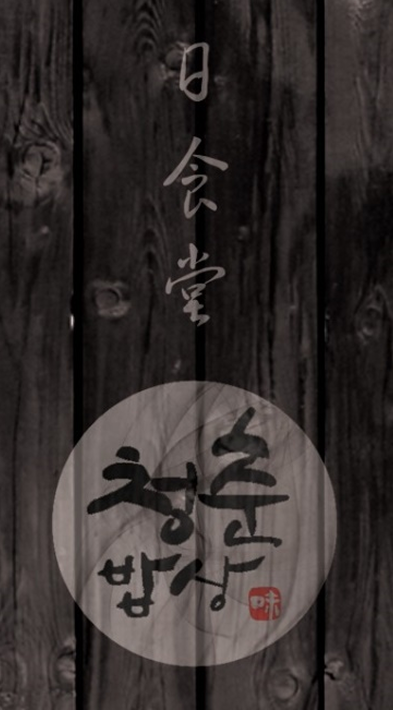 日食堂
청춘
밥상
味